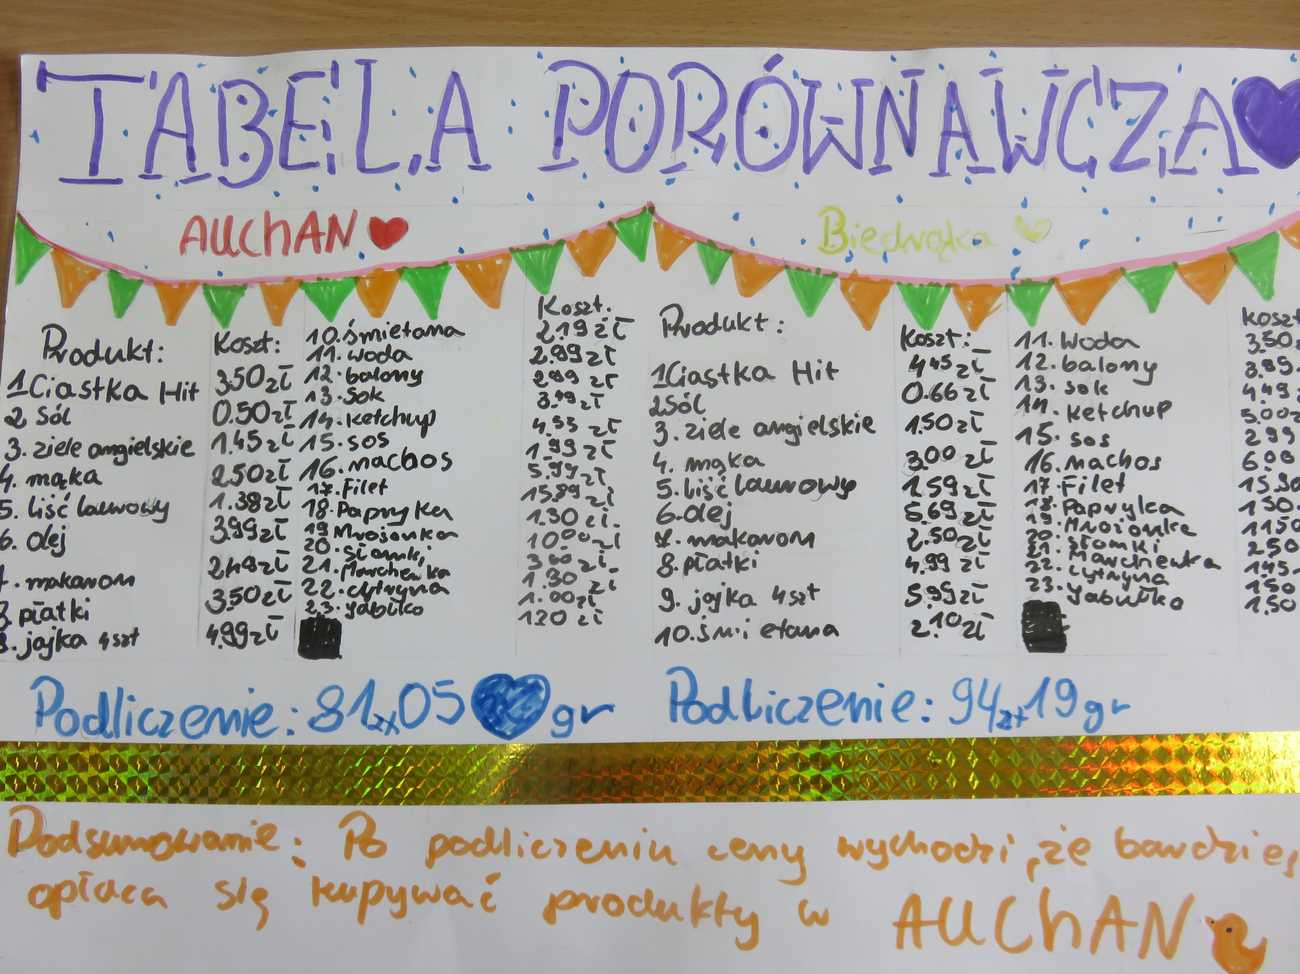 TABELA PORÓWNAWCZA
AUChAN
Produkt: Koszt:
1Ciastka Hit 3.50zł
2 Sól 0.50zł
3. ziele angielskie 1.45zł
4. mąka 2.50zł
5. liść laurowy 1.38zł
6. olej 3.99zł
7. makaron 2.49zł
8. płatki 3.50zł
9. jajka 4szt 4.99zł
Koszt:
10.śmietana 2.19 zł
11. woda 2.99zł
12. balony 2.99 zł
13. Sok 3.99zł
14. ketchup 4.55 zł
15. sos 1.99zł
16. nachos 5.99zł
17. Filet 15.89zł
18. Papryka 1.30 zł.
19 Mrożonka
20. Słomki
21. Marchewka 1.30 zł
22. cytryna 1.00zł
23. jabłko 1.20 zł
Podliczenie: 81zł05 gr
Biedronka
Produkt: Koszt:
1Ciastka Hit 4.45zł
2Sól 0.66zł
3. ziele angielskie 1.50zł
4. mąka 3.00 zł
5. liść laurowy 1.59zł
6.olej 5.69zł
7. makaron 2.50zł
8. płatki 4.99zł
9. jajka 4szt 5.99zł
10.śmietana 2.10zł
Koszt
11. woda 3.50
12. balony 3.99
13. sok 4.49
14. ketchup 5.00z
15. sos 2.99
16. nachos 6.00
17. Filet 15.90
18. Papryka 1.50
19. Mrożonka 11.50
20. Słomki 2.50
21. Marchewka 1.45
22. cytryna 1.50
23. jabłko 1.50
Podliczenie: 94zł19gr
Podsumowanie: Po podliczeniu ceny wychodzi, że bardziej
opłaca się kupywać produkty w AUChAN